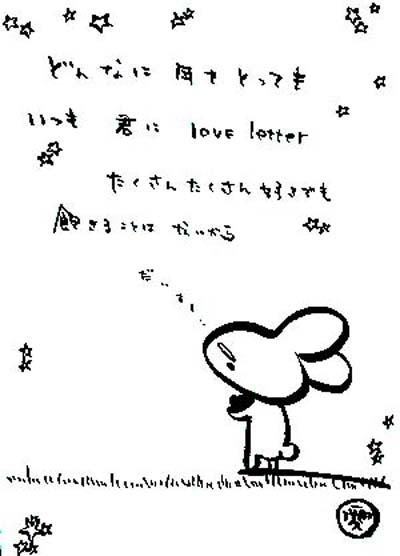 どんなに 月日 とっても
いつも 君に love letter
たくさんたくさん 好きでも
飽きることは ないから
だいすし
愛